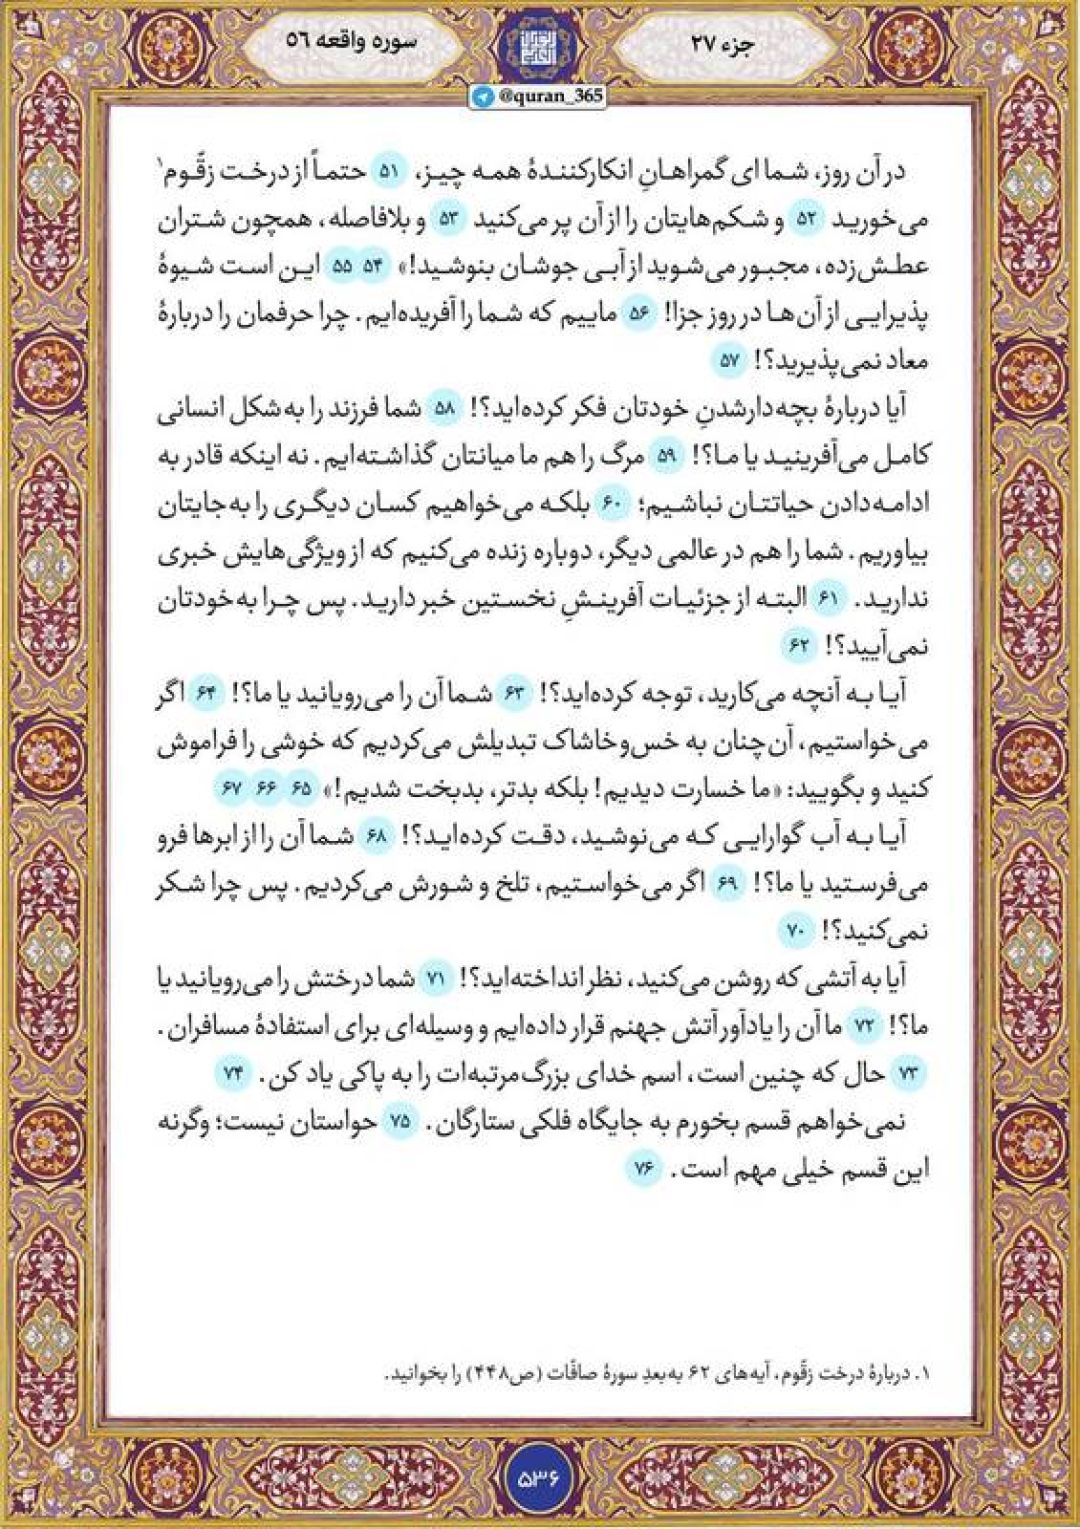 جزء ۲۷
سوره واقعه ۵۶
@quran_365
در آن روز، شما ای گمراهانِ انکارکنندهٔ همه چیز، ۵۱ حتماً از درخت زقّوم۱
می‌خورید ۵۲ و شکم‌هایتان را از آن پر می‌کنید ۵۳ و بلافاصله، همچون شتران
عطش‌زده، مجبور می‌شوید از آبی جوشان بنوشید!» ۵۴ ۵۵ این است شیوهٔ
پذیرایی از آن‌ها در روز جزا! ۵۶ ماییم که شما را آفریده‌ایم. چرا حرفمان را دربارهٔ
معاد نمی‌پذیرید؟! ۵۷
آیا دربارهٔ بچه‌دارشدنِ خودتان فکر کرده‌اید؟! ۵۸ شما فرزند را به‌شکل انسانی
کامل می‌آفرینید یا ما؟! ۵۹ مرگ را هم ما میانتان گذاشته‌ایم. نه اینکه قادر به
ادامه‌دادن حیاتتان نباشیم؛ ۶۰ بلکه می‌خواهیم کسان دیگری را به‌جایتان
بیاوریم. شما را هم در عالمی دیگر، دوباره زنده می‌کنیم که از ویژگی‌هایش خبری
ندارید. ۶۱ البته از جزئیات آفرینشِ نخستین خبر دارید. پس چرا به‌خودتان
نمی‌آیید؟! ۶۲
آیا به آنچه می‌کارید، توجه کرده‌اید؟! ۶۳ شما آن را می‌رویانید یا ما؟! ۶۴ اگر
می‌خواستیم، آن‌چنان به خس‌وخاشاک تبدیلش می‌کردیم که خوشی را فراموش
کنید و بگویید: «ما خسارت دیدیم! بلکه بدتر، بدبخت شدیم!» ۶۵ ۶۶ ۶۷
آیا به آب گوارایی که می‌نوشید، دقت کرده‌اید؟! ۶۸ شما آن را از ابرها فرو
می‌فرستید یا ما؟! ۶۹ اگر می‌خواستیم، تلخ و شورش می‌کردیم. پس چرا شکر
نمی‌کنید؟! ۷۰
آیا به آتشی که روشن می‌کنید، نظر انداخته‌اید؟! ۷۱ شما درختش را می‌رویانید یا
ما؟! ۷۲ ما آن را یادآور آتش جهنم قرار داده‌ایم و وسیله‌ای برای استفادهٔ مسافران.
۷۳ حال که چنین است، اسم خدای بزرگ‌مرتبه‌ات را به پاکی یاد کن. ۷۴
نمی‌خواهم قسم بخورم به جایگاه فلکی ستارگان. ۷۵ حواستان نیست؛ وگرنه
این قسم خیلی مهم است. ۷۶
۱. دربارهٔ درخت زقّوم، آیه‌های ۶۲ به‌بعدِ سورهٔ صافّات (ص۴۴۸) را بخوانید.
۵۳۶